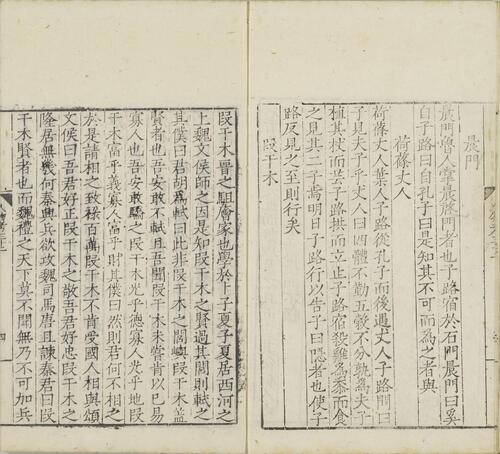 晨門
晨門魯人掌晨啓門者也子路宿於石門晨門曰奚
自子路曰自孔子曰是知其不可而為之者與
荷蓧丈人
荷蓧丈人葉人子路從孔子而後遇丈人子路問曰
子見夫子乎丈人曰四體不勤五穀不分孰為夫子
植其杖而芸子路拱而立止子路宿殺雞為黍而食
之見其二子焉明日子路行以告子曰隱者也使子
路反見之至則行矣
段干木
段干木晉之駔儈家也學於卜子夏子夏居西河之
上魏文侯師之因是知段干木之賢過其閭則軾之
其僕曰君胡為軾曰此非段干木之閭歟段干木蓋
賢者也吾安敢不軾且吾聞段干木未嘗肯以已易
寡人也吾安敢驕之段干木光乎德寡人光乎地段
干木富乎義寡人富乎財其僕曰然則君何不相之
於是請相之致祿百萬段干木不肯受國人相與頌
文侯曰吾君好正段干木之敬吾君好忠段干木之
隆居無幾何秦興兵欲攻魏司馬唐且諫秦君曰段
干木賢者也而魏禮之天下莫不聞無乃不可加兵
四